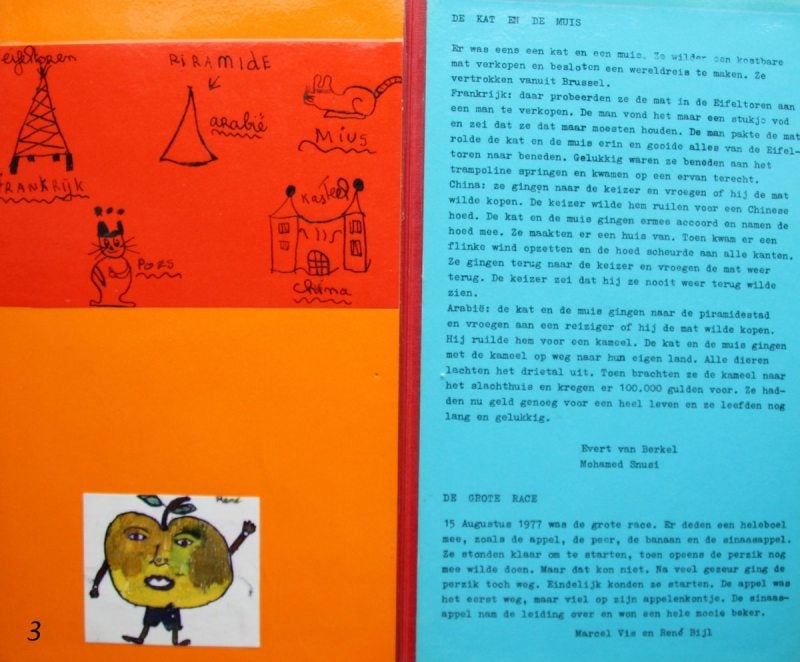 eifeltoren
PiRAMidE
arabië
Mius
FRANKRijk
Kasteel
Poes
China
René
3
DE KAT EN DE MUIS
Er was eens een kat en een muis. Ze wilden een kostbare
mat verkopen en besloten een wereldreis te maken. Ze
vertrokken vanuit Brussel.
Frankrijk: daar probeerden ze de mat in de Eifeltoren aan
een man te verkopen. De man vond het maar een stukje vod
en zei dat ze dat maar moesten houden. De man pakte de mat
rolde de kat en de muis erin en gooide alles van de Eifel-
toren naar beneden. Gelukkig waren ze beneden aan het
trampoline springen en kwamen op een ervan terecht.
China: ze gingen naar de keizer en vroegen of hij de mat
wilde kopen. De keizer wilde hem ruilen voor een Chinese
hoed. De kat en de muis gingen ermee accoord en namen de
hoed mee. Ze maakten er een huis van. Toen kwam er een
flinke wind opzetten en de hoed scheurde aan alle kanten.
Ze gingen terug naar de keizer en vroegen de mat weer
terug. De keizer zei dat hij ze nooit weer terug wilde
zien.
Arabië: de kat en de muis gingen naar de piramidestad
en vroegen aan een reiziger of hij de mat wilde kopen.
Hij ruilde hem voor een kameel. De kat en de muis gingen
met de kameel op weg naar hun eigen land. Alle dieren
lachten het drietal uit. Toen brachten ze de kameel naar
het slachthuis en kregen er 100.000 gulden voor. Ze had-
den nu geld genoeg voor een heel leven en ze leefden nog
lang en gelukkig.
Evert van Berkel
Mohamed Snusi
DE GROTE RACE
15 Augustus 1977 was de grote race. Er deden een heleboel
mee, zoals de appel, de peer, de banaan en de sinaasappel.
Ze stonden klaar om te starten, toen opeens de perzik nog
mee wilde doen. Maar dat kon niet. Na veel gezeur ging de
perzik toch weg. Eindelijk konden ze starten. De appel was
het eerst weg, maar viel op zijn appelenkontje. De sinaas-
appel nam de leiding over en won een hele mooie beker.
Marcel Vis en René Bijl